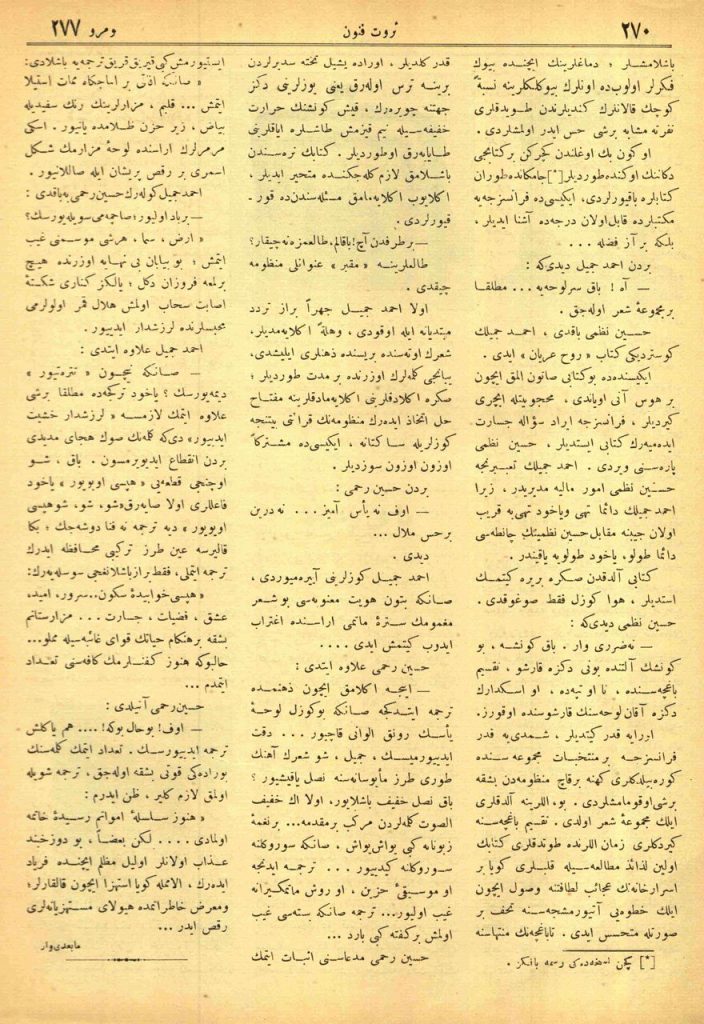 ٢٧٠
ثروت فنون
ومرو ٢٧٧
باشلامشلر ؛ دماغلرینك ایچنده بیوك
فكرلر اولوب‌ده اونلرك بیوكلكلرینه نسبةً
كوچك قالانلرك كندیلرندن طویدقلری
نفرته مشابه برشی حس ایدر اولمشلردی .
او كون بك اوغلندن كچركن بركتابجی
دكاننك اوكنده طوردیلر [*] جامكانده طوران
كتابلره باقیورلردی، ایكیسی‌ده فرانسزجه‌یه
مكتبلرده قابل اولان درجه‌ده آشنا ایدیلر ،
بلكه بر آز فضله ...
بردن احمد جمیل دیدی‌كه :
— آه ! باق سرلوحه‌یه ... مطلقا
برمجموعهٔ شعر اوله‌جق .
حسین نظمی باقدی ، احمد جمیلك
كوستردیكی كتاب « روح عریان » ایدی .
ایكیسنده‌ده بوكتابی صاتون آلمق ایچون
بر هوس آنی اویاندی ، محجوبیتله ایچری
كیردیلر ، فرانسزجه ایراد سؤاله جسارت
ایده‌میه‌رك كتابی ایستدیلر ، حسین نظمی
پاره‌سنی ویردی . احمد جمیلك تعبیرنجه
حسین نظمی امور مالیه مدیریدر ، زیرا
احمد جمیلك دائما تهی ویاخود تهی‌یه قریب
اولان جیبنه مقابل حسین نظمینك چانطه‌سی
دائما طولو، یاخود طولویه یاقیندر .
كتابی آلدقدن صكره بریره كیتمك
استدیلر ، هوا كوزل فقط صوغوقدی .
حسین نظمی دیدی‌كه :
— نه‌ضرری وار . باق كونشه ، بو
كونشك آلتنده بونی دكزه قارشو ، تقسیم
باغچه‌سنده ، تا او تپه‌ده ، او اسكدارك
دكزه آقان لوحه‌سنك قارشوسنده اوقورز.
اورایه قدر كیتدیلر ، شمدی‌یه قدر
فرانسزجه بر منتخبات مجموعه سنده
كوره‌بیلدكلری كهنه برقاچ منظومه‌دن بشقه
برشی اوقومامشلردی . بو، اللرینه آلدقلری
ایلك مجموعهٔ شعر اولدی . تقسیم باغچه‌سنه
كیردكلری زمان اللرنده طوتدقلری كتابك
اولین لذائذ مطالعه‌سیله قلبلری كویا بر
اسرارخانه‌نك عجائب لطافتنه وصول ایچون
ایلك خطوه‌یی آتیورمشجه‌سنه تحف بر
صورتله متحسس ایدی . تاباغچه‌نك منتهاسنه
[*] كچن نسخه‌ده‌كی رسمه باقكز .
قدر كلدیلر ، اوراده یشیل تخته سدیرلردن
برینه ترس اوله‌رق یعنی یوزلرینی دكز
جهتنه چویره‌رك ، قیش كونشنك حرارت
خفیفه‌سیله نیم قیزمش طاشلره ایاقلرینی
طایایه‌رق اوطوردیلر . كتابك نره‌سندن
باشلامق لازم كله‌جكنده متحیر ایدیلر ،
اكلایوب اكلایه‌مامق مسئله‌سندن‌ده قور-
قیورلردی .
— برطرفدن آچ! باقالم، طالعمزه نه‌چیقار؟
طالعلرینه « مقبر » عنوانلی منظومه
چیقدی .
اولا احمد جمیل جهراً براز تردد
مبتدیانه ایله اوقودی ، وهلةً اكلایه‌مدیلر،
شعرك اوته‌سنده بریسنده ذهنلری ایلیشدی،
یبانجی كله‌لرك اوزرنده بر مدت طوردیلر ؛
صكره اكلادقلرینی اكلایه‌مادقلرینه مفتاح
حل اتخاذ ایده‌رك منظومه‌نك قرائتی بیتنجه
كوزلریله ساكتانه ، ایكیسی‌ده مشتركاً
اوزون اوزون سوزدیلر .
بردن حسین رحمی :
— اوف نه یأس آمیز ... نه‌درین
برحس ملال ...
دیدی .
احمد جمیل كوزلرینی آیره‌میوردی ،
صانكه بتون هویت معنویه‌سی بو شعر
مغمومك سترهٔ ماتمی اراسنده اغتراب
ایدوب كیتمش ایدی ....
حسین رحمی علاوه ایتدی :
— ایجه اكلامق ایچون ذهنمده
ترجمه ایتدكجه صانكه بوكوزل لوحهٔ
یأسك رونق الوانی قاچیور ... دقت
ایدییورمیسك ، جمیل ، شو شعرك آهنك
طوری طرز مأیوسانه‌سنه نصل یاقیشیور ؟
باق نصل خفیف باشلایور، اولا اك خفیف
الصوت كله‌لردن مركب برمقدمه... برنغمهٔ
زبونانه كبی یواش یواش ، صانكه سوروكلنه
سوروكلنه كیدییور ... ترجمه ایدنجه
او موسیقیٔ حزین ، او روش ماتمكیرانه
غیب اولیور... ترجمه صانكه بسته‌سی غیب
اولمش بركفته كبی بارد ...
حسین رحمی مدعاسنی اثبات ایتمك
ایستیورمش كبی قیریق قریق ترجمه‌یه باشلادی:
« صانكه اذن بر اماجكاه ممات استیلا
ایتمش ... قلبم ، مزارلرینك رنك سفیدیله
بیاض ، زیر حزن ظلامده یاتیور . اسكی
مرمرلرك اراسنده لوحهٔ مزارمك شكل
اسمری بر رقص پریشان ایله صاللانیور .
احمد جمیل كوله‌رك حسین رحمی‌یه باقدی :
— برباد اولیور؛ صاچمه‌می سویله‌یورسك؟
« ارض ، سما ، هرشی موسمنی غیب
ایتمش ؛ بو بیابان بی نهایه اوزرنده هیچ
برلمعه فروزان دكل ؛ یالكز كناری شكستهٔ
اصابت سحاب اولمش هلال قمر اولولرمی
محبسلرنده لرزشدار ایدییور .
احمد جمیل علاوه ایتدی :
— صانكه نیچون « تتره‌تیور »
دیمه‌یورسك ؟ یاخود تركجه‌ده مطلقا برشی
علاوه ایتمك لازمسه « لرزشدار خشیت
ایدییور» دی‌كه كله‌نك صوك هجای مدیدی
بردن انقطاع ایدییورمسون . باق ، شو
اوچنجی قطعه‌یی « هپسی اویویور » یاخود
فاعللری اولا صایه‌رق «شو، شو، شو هپسی
اویویور » دیه ترجمه نه فنا دوشه‌جك ؛ بكا
قالیرسه عین طرز تركیبی محافظه ایدرك
ترجمه ایتملی، فقط براز باشلانغجی سوسله‌یه‌رك:
« هپسی خوابیدهٔ سكون...سرور، امید،
عشق ، فضیات ، جسارت ... مزارستانم
بشقه برهنكام حیاتك قوای غائبه‌سیله مملو...
حالبوكه هنوز كفنلرمك كافه‌سنی تعداد
ایتمدم ...
حسین‌رحمی آتیلدی :
— اوف! بوحال بوكه! .... هم یاكلش
ترجمه ایدییورسك . تعداد ایتمك كله‌سنك
بوراده‌كی قوتی بشقه اوله‌جق ، ترجمه شویله
اولمق لازم كلیر ، ظن ایدرم :
« هنوز سلسلهٔ امواتم رسیدهٔ خاتمه
اولمادی .... لكن بعضاً ، بو دوزخند
عذاب اولانلر اولیل مظلم ایچنده فریاد
ایده‌رك ، الاممله كویا استهزا ایچون قالقارلر؛
ومعرض خاطراتمده هیولای مستهزیانه‌لری
رقص ایدر ...
مابعدی‌وار